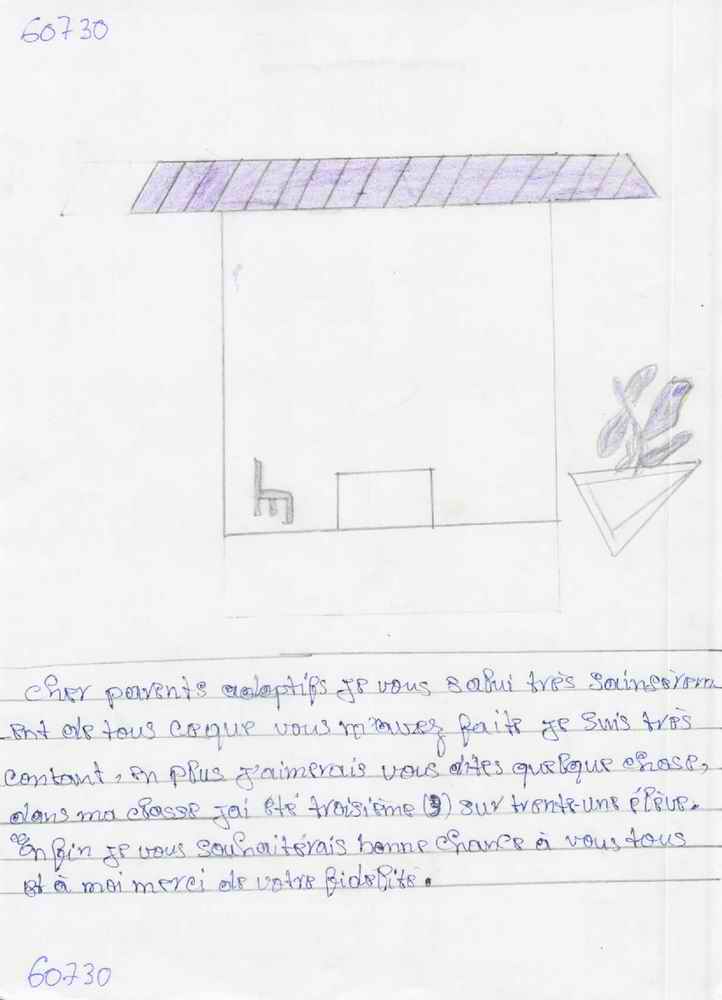 60730
Cher parents adoptifs je vous salui très sainsèrem
ent de tous ceque vous m'avez faits je suis très
contant, en plus j'aimerais vous dites quelque chose,
dans ma classe jai été troisième (3) sur trente-une élève.
Enfin je vous souhaiterais bonne chance à vous tous
et à moi merci de votre fidelité.
60730